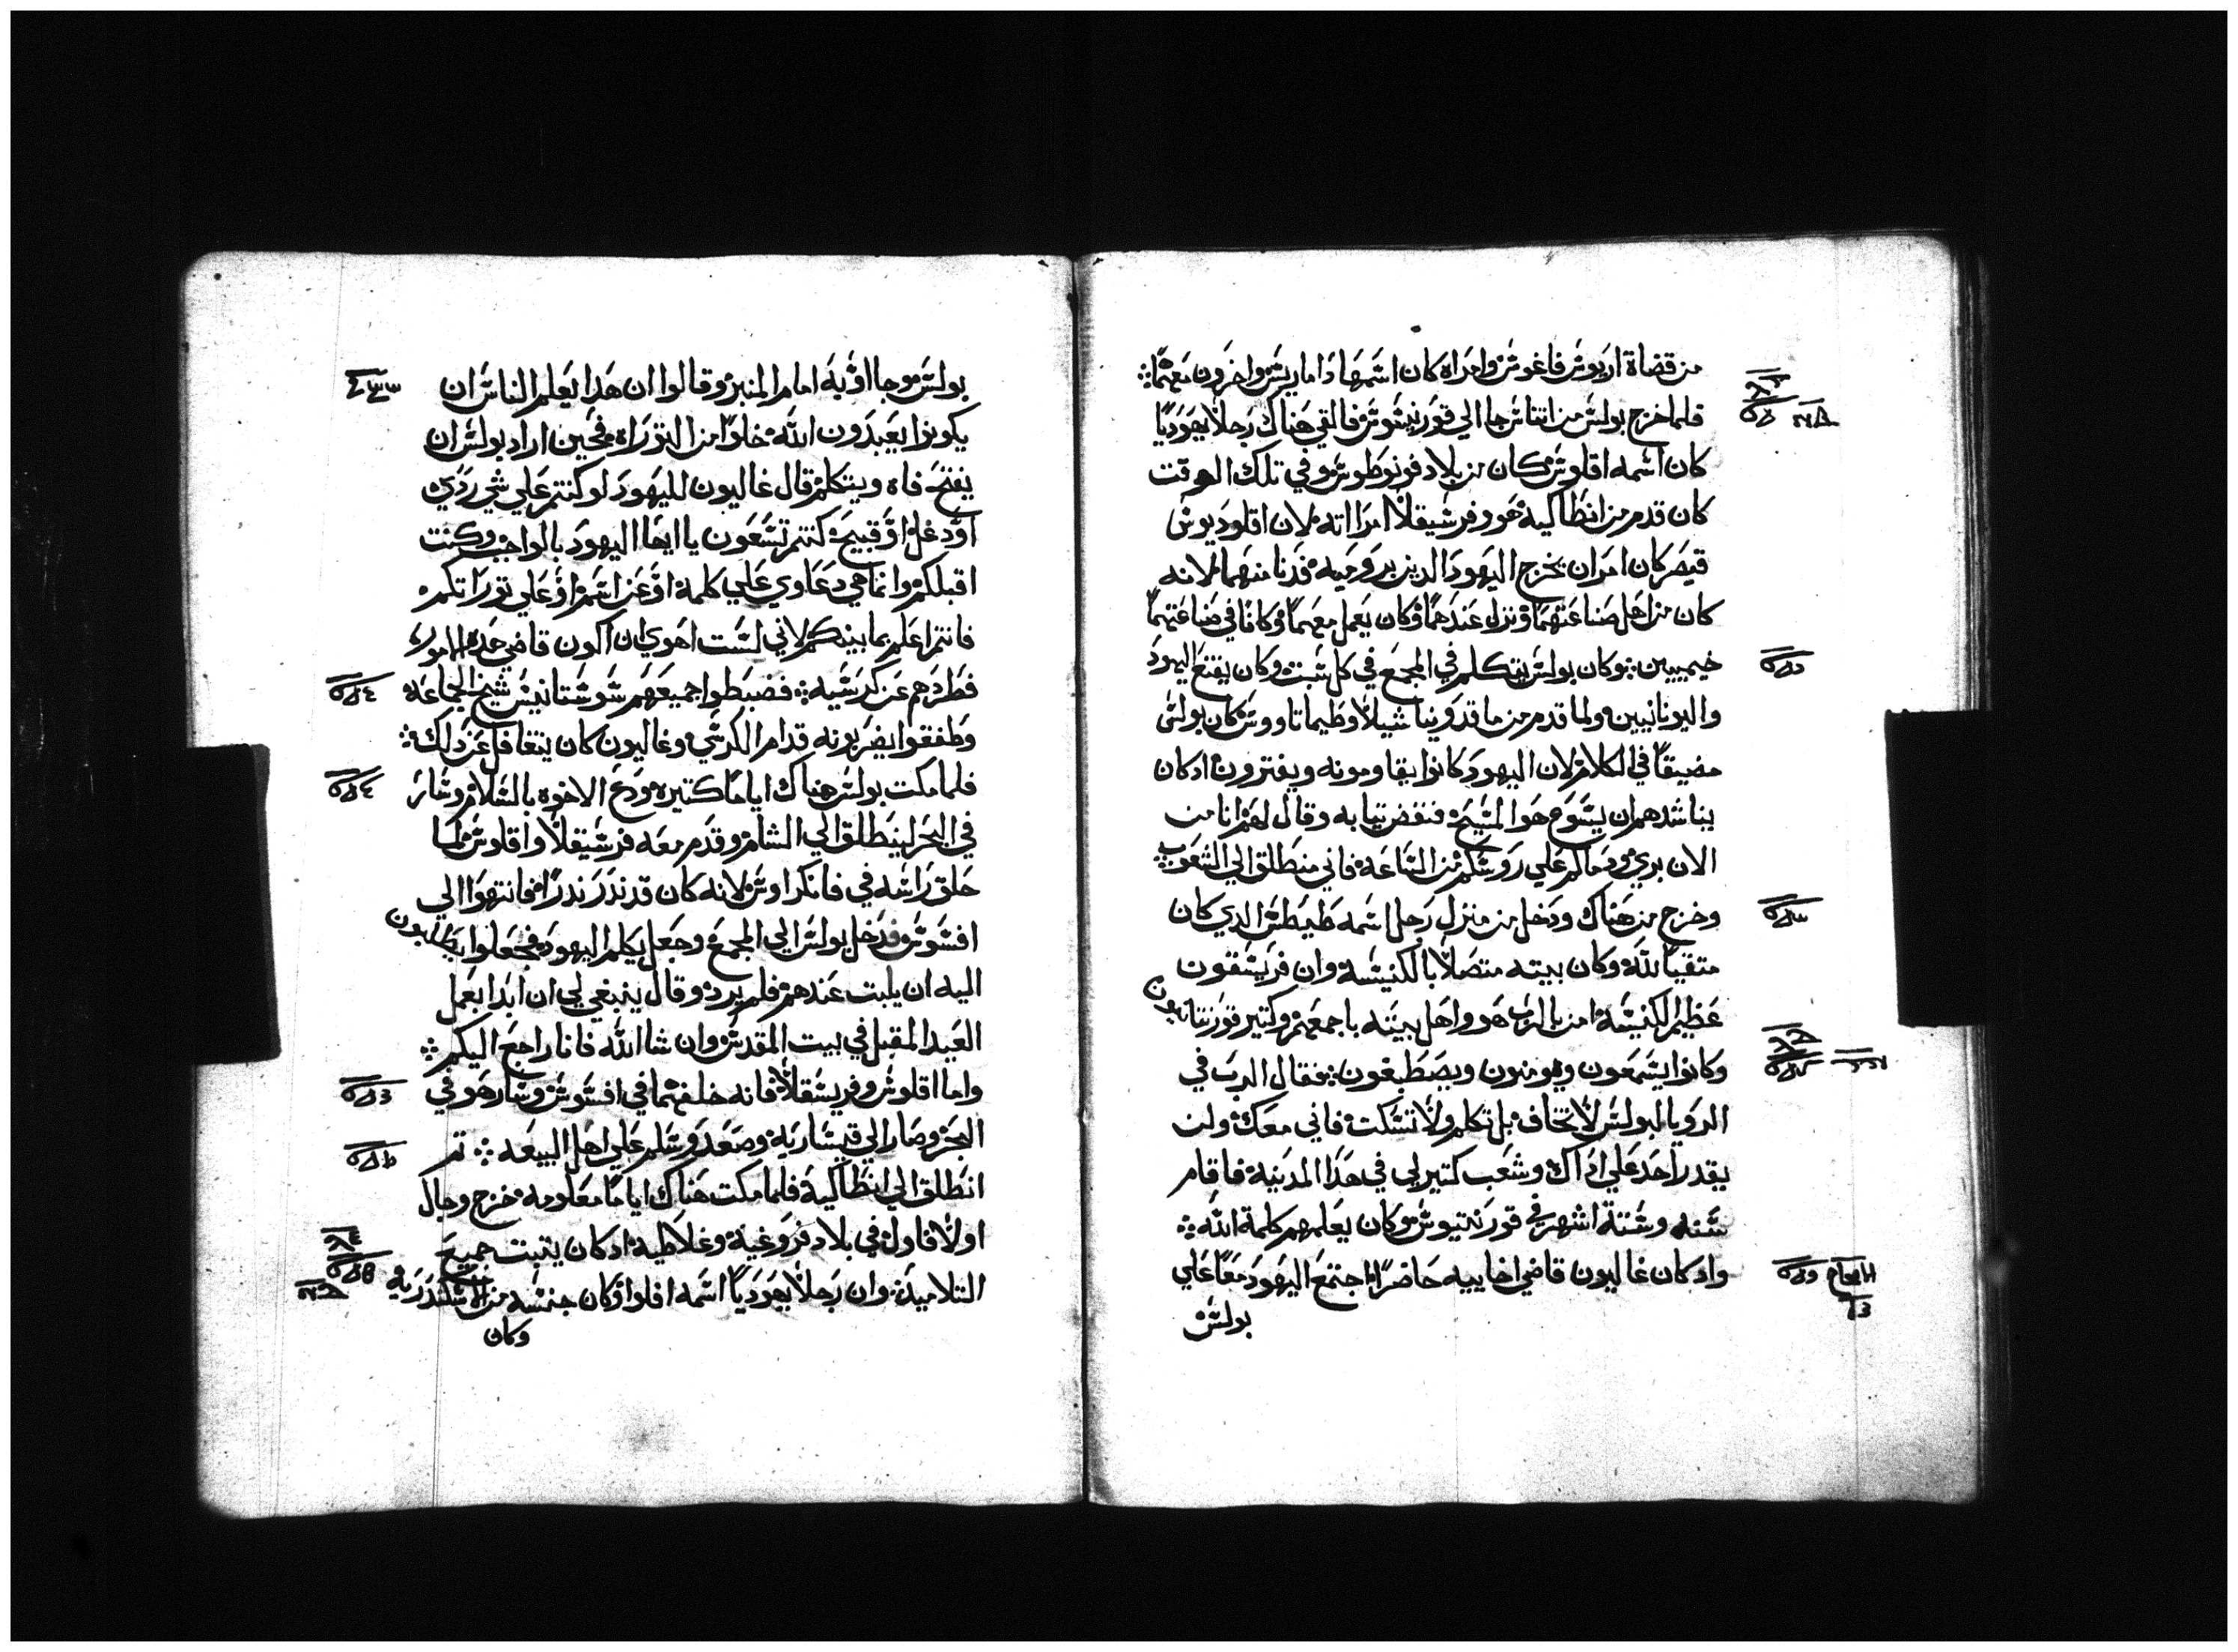 من قضاة اريوس فاغوس وامراه كان اسمها داماريس واخرون معهما
فلما خرج بولس من اتناس جا الي قورنيتوس فالقي هناك رجلا يهوديا
كان اسمه اقلوس كان من بلاد فونوطوس وفي تلك الوقت
كان قدم من انطاكيه هو وفرسيقلا امرااته لان اقلوديوس
قيصر كان امر ان يخرج اليهود الدين بروميه فدنا منهما لانه
كان من اهل صناعتهما ونزل عندهما وكان يعمل معهما وكانا في صناعتهما
خيميين وكان بولس يتكلم في المجمع في كل سبت وكان يقنع اليهود
واليونانيين ولما قدم من ماقدونيا شيلا وطيماتاووس كان بولس
مضيقا في الكلام لان اليهود كانوا يقاومونه ويفترون ادكان
يناشدهم ان يسوع هو المسيح فنفض تيابه وقال لهم انا من
الان بري ودماكم علي روسكم من الساعه فاني منطلق الي الشعوب
وخرج من هناك ودخل من منزل رجل اسمه طيطس الدي كان
متقيا لله وكان بيته متصلا بالكنيسه وان فريسفون
عظيم الكنيسه امن بالرب هو واهل بيته باجمعهم وكتير قورنتانيون
وكانوا يسمعون ويومنون ويصطبغون فقال الرب في
الرويا لبولس لا تخاف بل تكلم ولا تسكت فاني معك ولن
يقدر احد علي اداك وشعب كتير لي في هدا المدينه فاقام
سنه وستة اشهر في قورنتيوس وكان يعلمهم كلمة الله
واد كان غاليون قاضي اخاييه حاضرا اجتمع اليهود معا علي
بولس
بولس وجااو به امام المنبر وقالوا ان هدا يعلم الناس ان
يكونوا يعبدون الله خلوا من التوراه فحين اراد بولس ان
يفتح فاه ويتكلم قال غاليون لليهود لو كنتم علي شي ردي
او دغل او قبيح كنتم تسعون يا ايها اليهود بالواجب وكنت
اقبلكم وانما هي دعاوي علي كلمة او عن اسم او علي توراتكم
فانتم اعلم بما بينكم لاني لست اهوي ان اكون قاضي هده الامور
فطردهم عن كرسيه فضبطوا جميعهم سوستانيس شيخ الجماعه
وطفقوا يضربونه قدام الكرسي وغاليون كان يتغافل عن دلك
فلما مكت بولس هناك اياما كتيره ودع الاخوه بالسلام وسار
في البحر لينطلق الي الشام وقدم معه فرسيقلا واقلوس لما
حلق راسه في فانكراوس لانه كان قد ندر ندرا فانتهوا الي
افسوس فدخل بولس الي المجمع وجعل يكلم اليهود فجعلوا يطلبون
اليه ان يلبت عندهم فلم يرد وقال ينبغي لي ان ابدا بعمل
العيد المقبل في بيت المقدس وان شا الله فانا راجع اليكم
واما اقلوس وفريسقلا فانه خلفهما في افسوس وسار هو في
البحر وصار الي قيساريه وصعد وسلم علي اهل البيعه تم
انطلق الي انطاكيه فلما مكت هناك اياما معلومه خرج وجال
اولا فاول في بلاد فروغيه وغلاطيه ادكان يتبت جميع
التلاميد وان رجلا يهوديا اسمه افلوا وكان جنسه من الاسكندريه
وكان